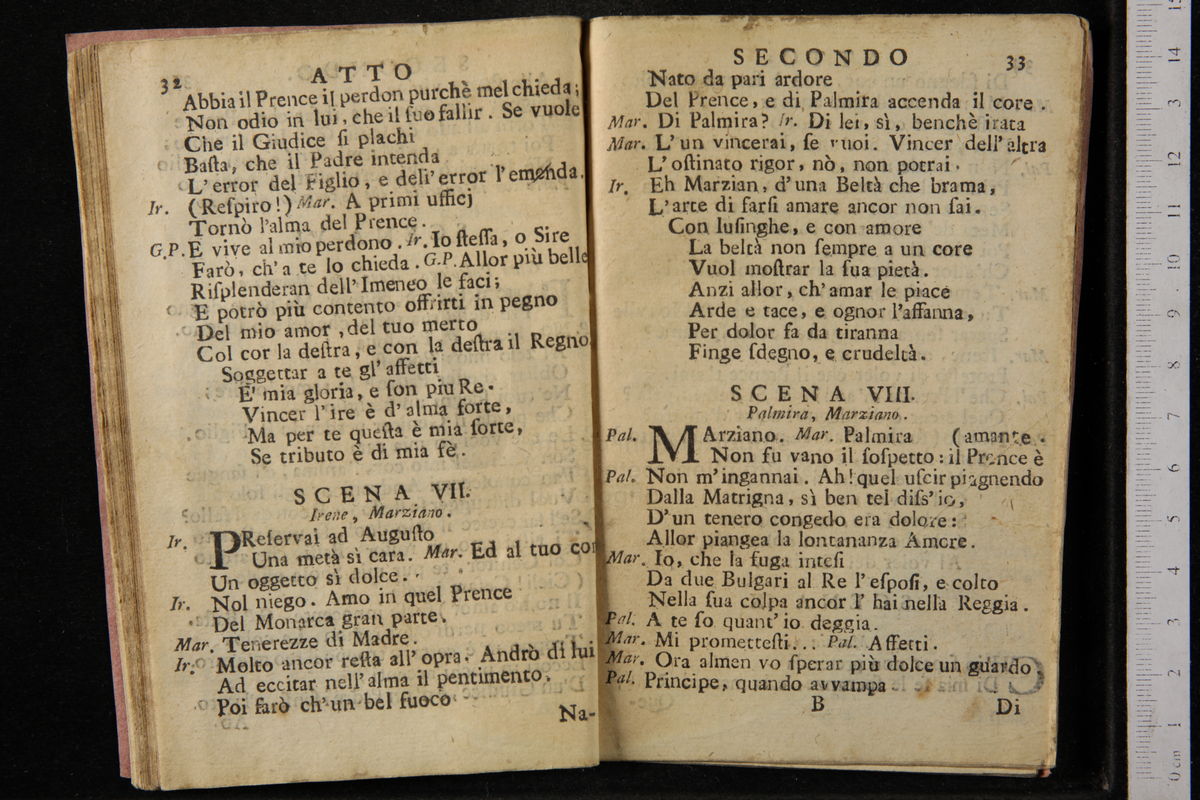 32
ATTO
Abbia il Prence il perdon purchè mel chieda;
Non odio in lui, che il ſuo fallir. Se vuole
Che il Giudice ſi plachi
Baſta, che il Padre intenda
L'error del Figlio, e dell'error l'emenda.
Ir. (Reſpiro!) Mar. A primi ufficj
Tornò l'alma del Prence.
G.P. E vive al mio perdono. Ir. Io ſteſſa, o Sire
Farò, ch'a te lo chieda. G.P. Allor più belle
Riſplenderan dell'Imeneo le faci;
E potrò più contento offrirti in pegno
Del mio amor, del tuo merto
Col cor la deſtra, e con la deſtra il Regno.
Soggettar a te gl'affetti
E' mia gloria, e ſon piu Re.
Vincer l'ire è d'alma forte,
Ma per te queſta è mia ſorte,
Se tributo è di mia fè.
SCENA VII.
Irene, Marziano.
Ir. PReſervai ad Auguſto
Una metà sì cara. Mar. Ed al tuo cor
Un oggetto sì dolce.
Ir. Nol niego. Amo in quel Prence
Del Monarca gran parte.
Mar. Tenerezze di Madre.
Ir. Molto ancor reſta all'opra. Andrò di lui
Ad eccitar nell'alma il pentimento,
Poi farò ch'un bel fuoco
Na-
SECONDO
33
Nato da pari ardore
Del Prence, e di Palmira accenda il core.
Mar. Di Palmira? Ir. Di lei, sì, benchè irata
Mar. L'un vincerai, ſe vuoi. Vincer dell'altra
L'oſtinato rigor, nò, non potrai.
Ir. Eh Marzian, d'una Beltà che brama,
L'arte di farſi amare ancor non ſai.
Con luſinghe, e con amore
La beltà non ſempre a un core
Vuol moſtrar la ſua pietà.
Anzi allor, ch'amar le piace
Arde e tace, e ognor l'affanna,
Per dolor fa da tiranna
Finge ſdegno, e crudeltà.
SCENA VIII.
Palmira, Marziano.
Pal. MArziano. Mar. Palmira (amante.
Non fu vano il ſoſpetto: il Prence è
Pal. Non m'ingannai. Ah! quel uſcir piagnendo
Dalla Matrigna, sì ben tel diſs'io,
D'un tenero congedo era dolore:
Allor piangea la lontananza Amore.
Mar. Io, che la fuga inteſi
Da due Bulgari al Re l'eſpoſi, e colto
Nella ſua colpa ancor l'hai nella Reggia.
Pal. A te ſo quant'io deggia.
Mar. Mi prometteſti... Pal. Affetti.
Mar. Ora almen vo ſperar più dolce un guardo
Pal. Principe, quando avvampa
B
Di